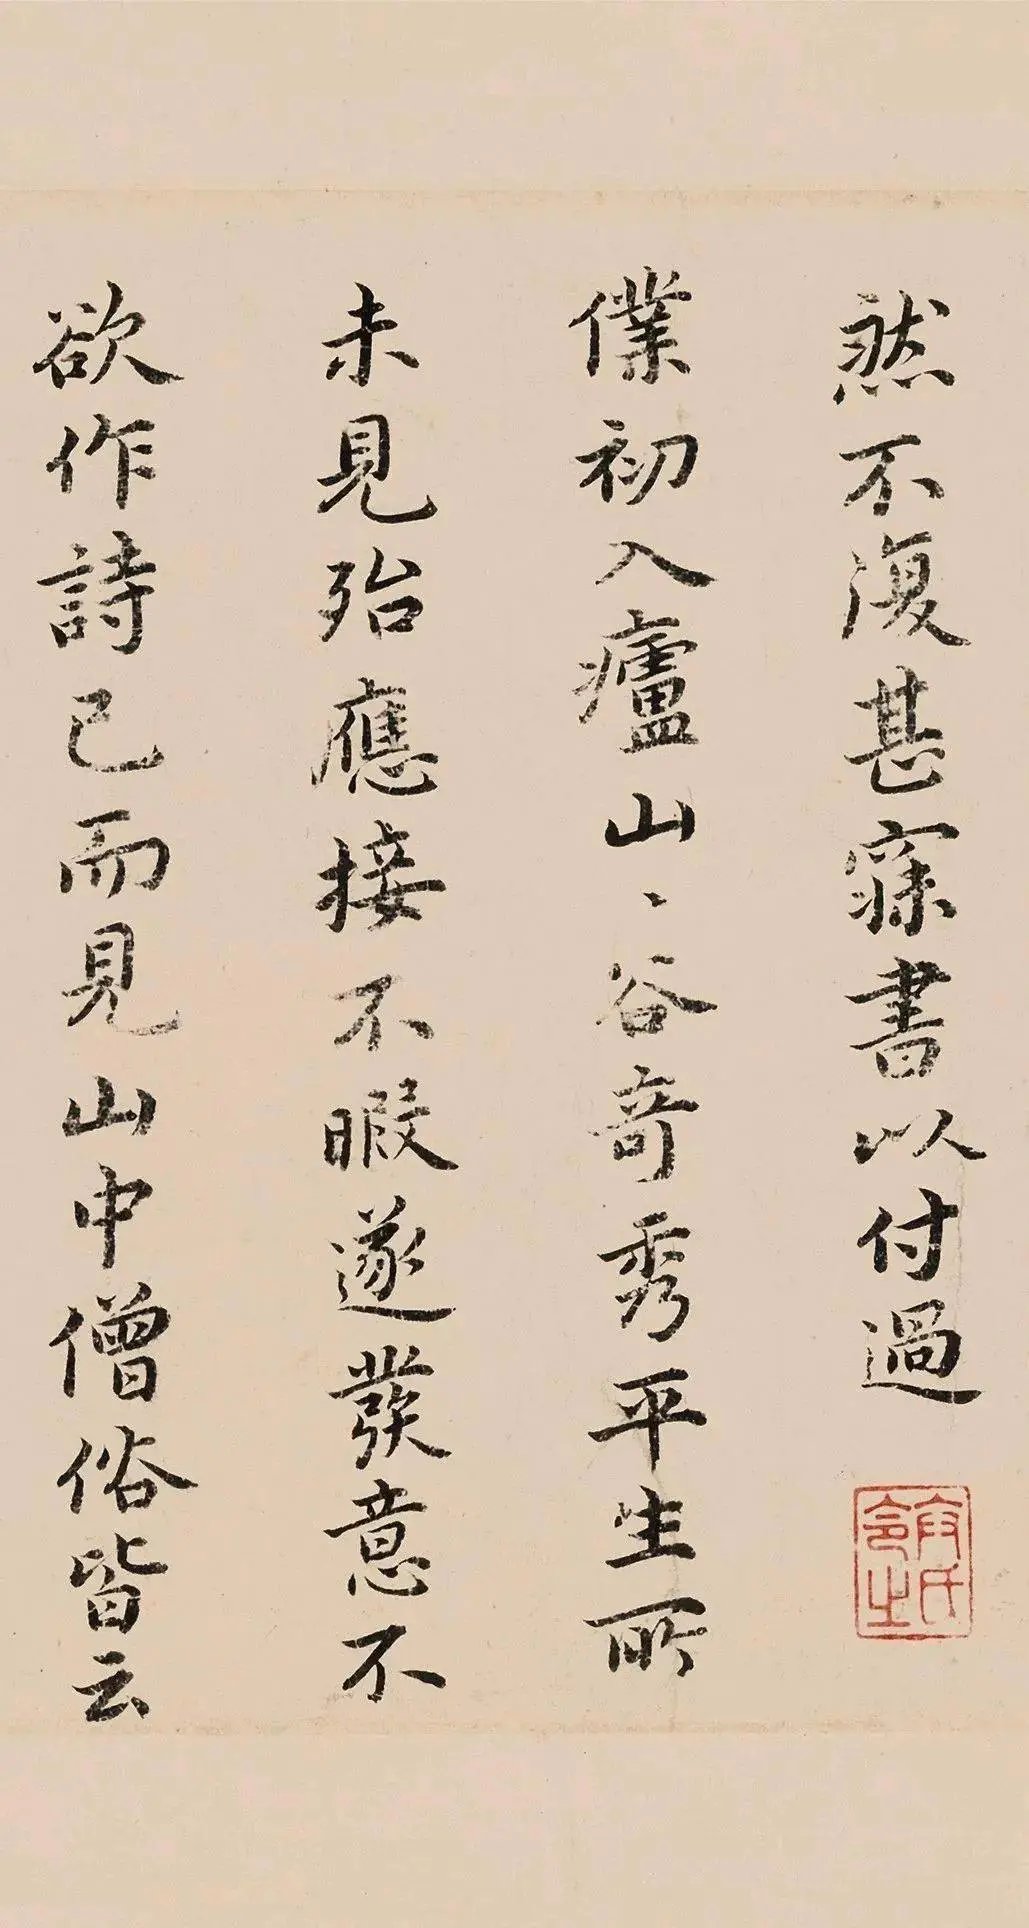 然不復甚寐書以付過
僕初入廬山、谷奇秀平生所
未見殆應接不暇遂發意不
欲作詩已而見山中僧俗皆云